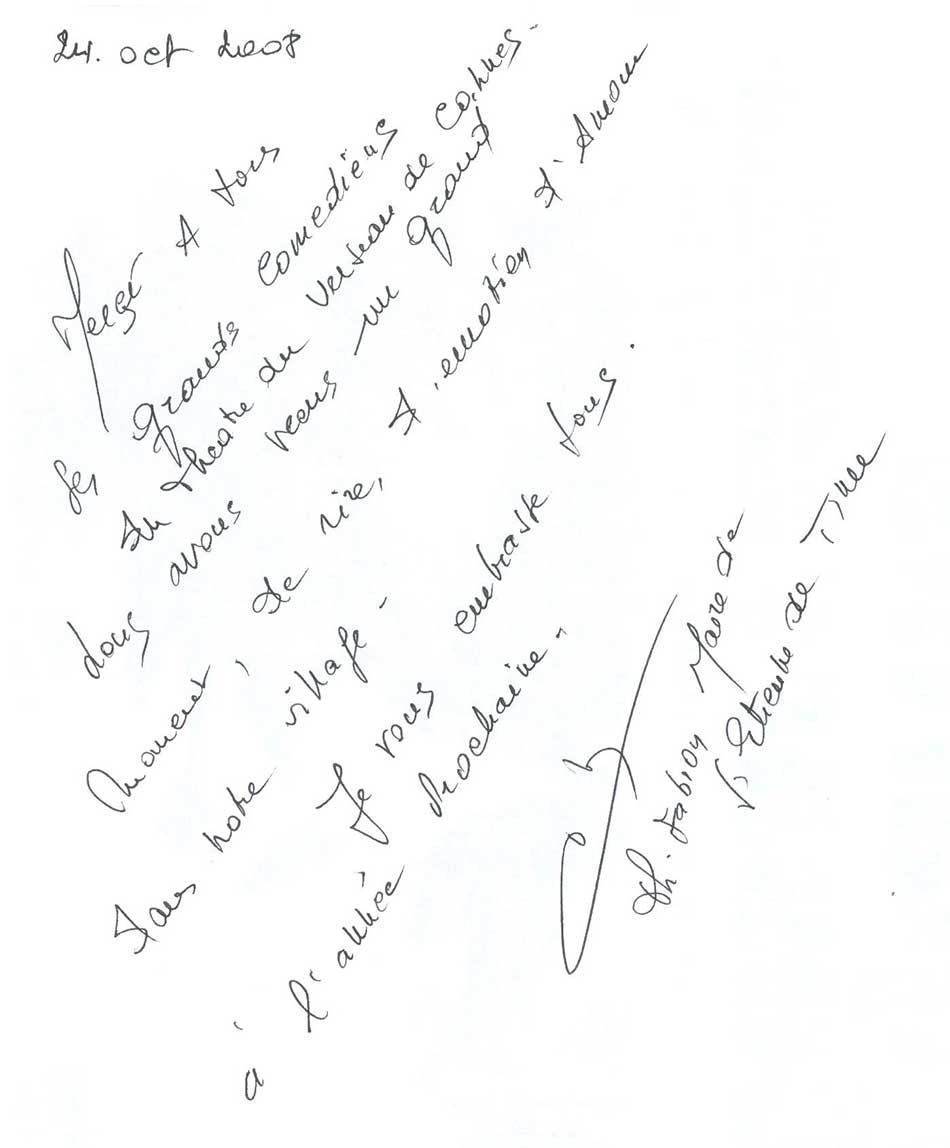 24. oct 2008
Merci A tous
les grands comediens
du theatre du verseau de Cannes-
Nous avons vecus un grand
moment, de rire, d'emotion d'Amour
dans notre village -
Je vous embrasse tous.
à l'année prochaine -
Maire de
St Etienne de Tinee